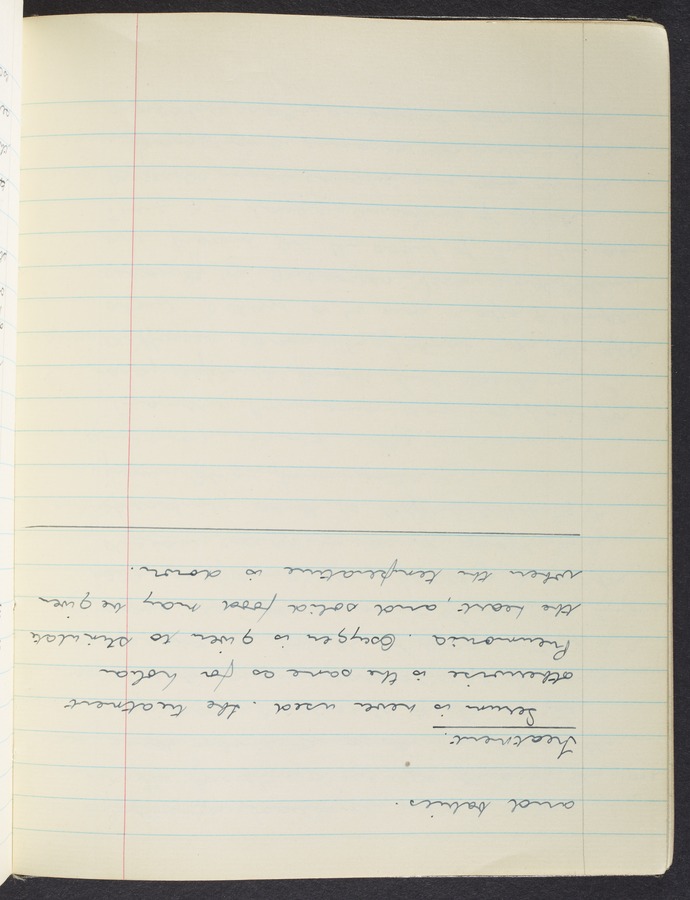 and babies.
Treatment.
Serum is never used. The treatment
otherwise is the same as for lobar
Pneumonia. Oxygen is given to stimulate
the heart, and solid food may be given
when the temperature is down.